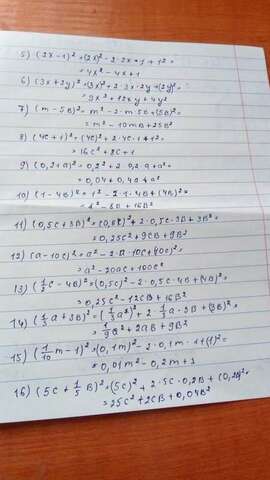 5) (2x-1)² = (2x)² - 2·2x·1 + 1² =
= 4x² - 4x + 1
6) (3x+2y)² = (3x)² + 2·3x·2y + (2y)² =
= 9x² + 12xy + 4y²
7) (m-5в)² = m² - 2·m·5в + (5в)² =
= m² - 10mв + 25в²
8) (4c+1)² = (4c)² + 2·4c·1 + 1² =
16c² + 8c + 1
9) (0,2+a)² = 0,2² + 2·0,2·a + a² =
= 0,04 + 0,4a + a²
10) (1-4в)² = 1² - 2·1·4в + (4в)² =
11) (0,5c+3в)² = (0,5c)² + 2·0,5c·3в + 3в² =
= 0,25c² + 9cв + 9в²
12) (a-10c)² = a² - 2·a·10c + (10c)² =
= a² - 20ac + 100c²
13) (½c - 4в)² = (0,5c)² - 2·0,5c·4в + (4в)² =
= 0,25c² - 12cв + 16в²
14) (⅓a + 3в)² = (⅓a)² + 2·⅓a·3в + (3в)² =
= 1/9в² + 2aв + 9в²
15) (1/10m - 1)² = (0,1m)² - 2·0,1m·1 + (1)² =
= 0,01m² - 0,2m + 1
16) (5c + ⅕в)² = (5c)² + 2·5c·0,2в + (0,2в)² =
= 25c² + 2cв + 0,04в²